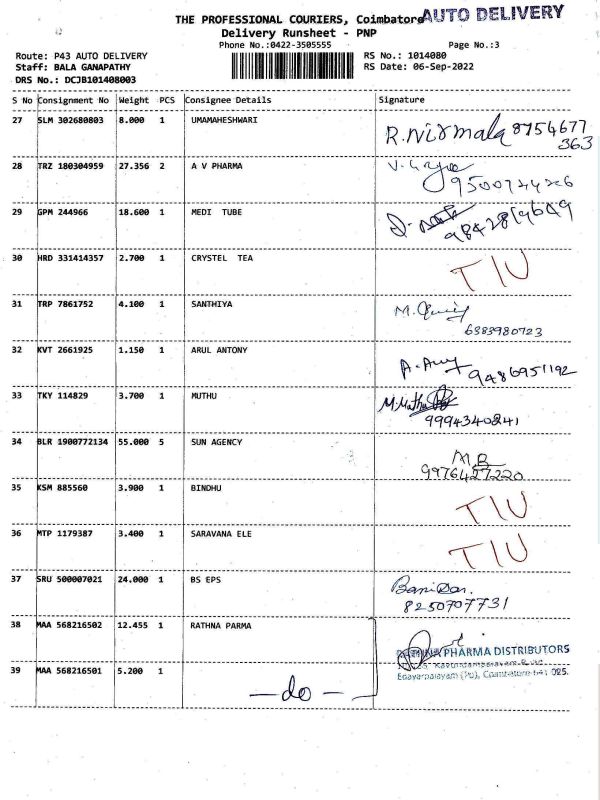 THE PROFESSIONAL COURIERS, Coimbatore AUTO DELIVERY
Delivery Runsheet - PNP
Phone No.:0422-3505555 Page No.:3
Route: P43 AUTO DELIVERY RS No.: 1014080
Staff: BALA GANAPATHY RS Date: 06-Sep-2022
DRS No.: DCJB101408003
S No Consignment No Weight PCS Consignee Details Signature
27 SLM 302680803 8.000 1 UMAMAHESHWARI R. Nirmala 8754677
363
28 TRZ 180304959 27.356 2 A V PHARMA
29 GPM 244966 18.600 1 MEDI TUBE
30 HRD 331414357 2.700 1 CRYSTEL TEA TIU
31 TRP 7861752 4.100 1 SANTHIYA M.
6383980723
32 KVT 2661925 1.150 1 ARUL ANTONY A.
9486951192
33 TKY 114829 3.700 1 MUTHU M. Muthu
9994340841
34 BLR 1900772134 55.000 5 SUN AGENCY MB
9976427220
35 KSM 885560 3.900 1 BINDHU TIU
36 MTP 1179387 3.400 1 SARAVANA ELE TIU
37 SRU 500007021 24.000 1 BS EPS
8250707731
38 MAA 568216502 12.455 1 RATHNA PARMA
PHARMA DISTRIBUTORS
39 MAA 568216501 5.200 1 —do—
Coimbatore-641 025.